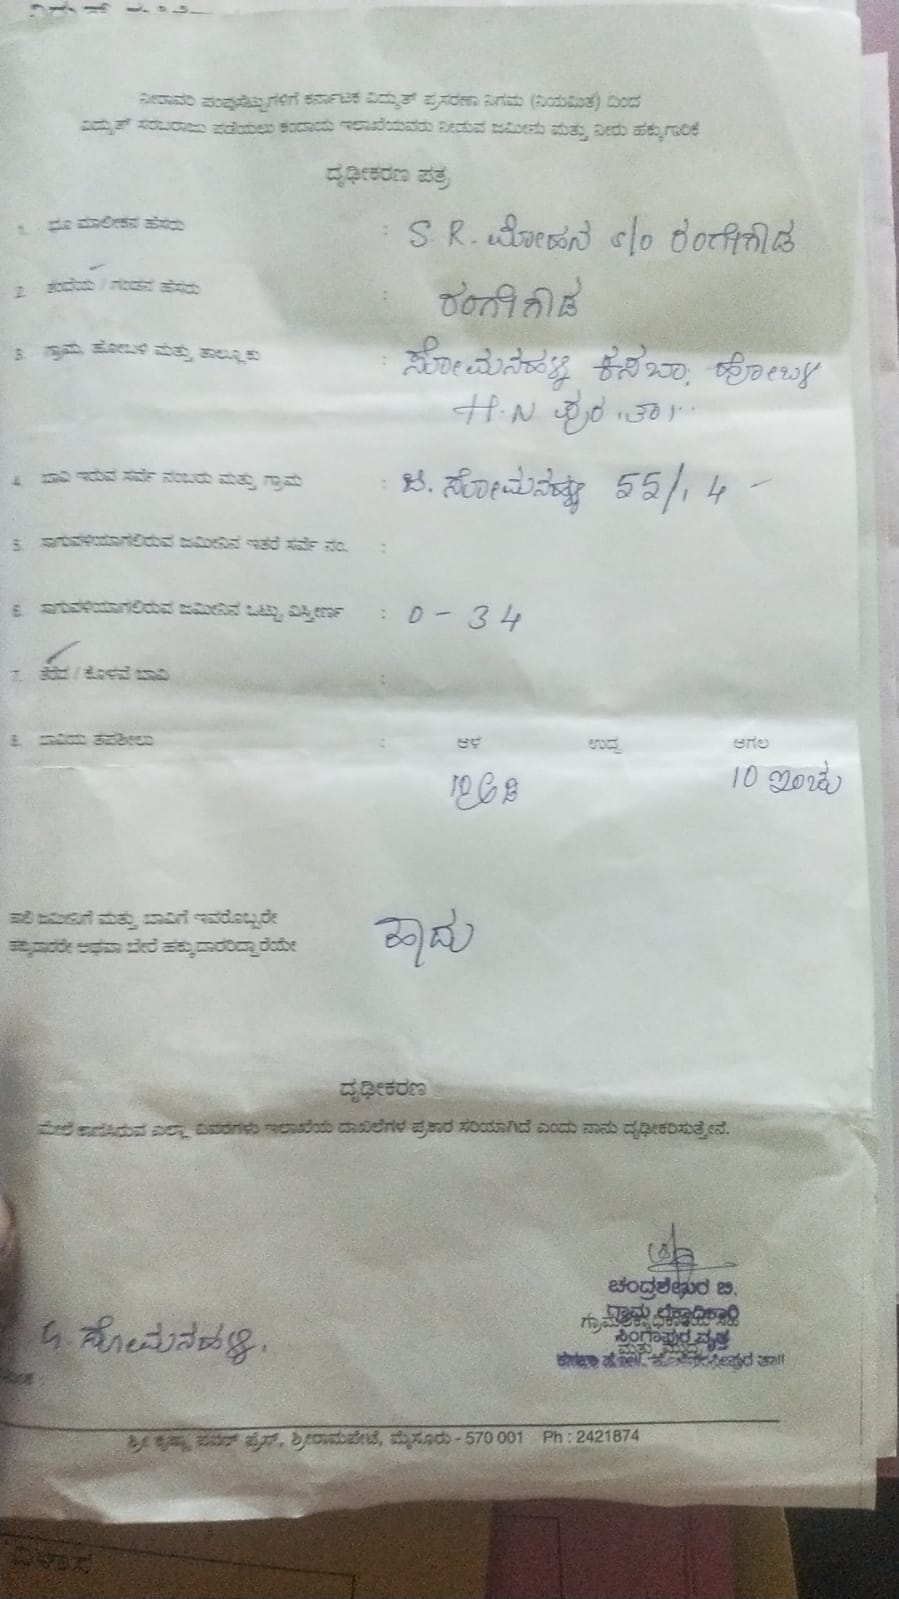 ನೀರಾವರಿ ಪಂಪುಸೆಟ್ಟುಗಳಿಗೆ ಕರ್ನಾಟಕ ವಿದ್ಯುತ್ ಪ್ರಸರಣಾ ನಿಗಮ (ನಿಯಮಿತ) ದಿಂದ
ವಿದ್ಯುತ್ ಸರಬರಾಜು ಪಡೆಯಲು ಕಂದಾಯ ಇಲಾಖೆಯವರು ನೀಡುವ ಜಮೀನು ಮತ್ತು ನೀರು ಹಕ್ಕುಗಾರಿಕೆ
ದೃಢೀಕರಣ ಪತ್ರ
1. ಭೂ ಮಾಲೀಕನ ಹೆಸರು : S R. ಮೋಹನ s/o ರಂಗೇಗೌಡ
2. ತಂದೆಯ / ಗಂಡನ ಹೆಸರು : ರಂಗೇಗೌಡ
3. ಗ್ರಾಮ, ಹೋಬಳಿ ಮತ್ತು ತಾಲ್ಲೂಕು : ಸೋಮನಹಳ್ಳಿ ಕಸಬಾ, ಹೋಬಳಿ
H.N ಪುರ .ತಾ..
4. ಬಾವಿ ಇರುವ ಸರ್ವೆ ನಂಬರು ಮತ್ತು ಗ್ರಾಮ : ಸೋಮನಹಳ್ಳಿ 55/14 -
5. ಸಾಗುವಳಿಯಾಗಲಿರುವ ಜಮೀನಿನ ಇತರೆ ಸರ್ವೆ ನಂ. :
6. ಸಾಗುವಳಿಯಾಗಲಿರುವ ಜಮೀನಿನ ಒಟ್ಟು ವಿಸ್ತೀರ್ಣ : 0 - 34
7. ತೆರೆದ / ಕೊಳವೆ ಬಾವಿ :
8. ಬಾವಿಯ ತಪಶೀಲು : ಆಳ ಉದ್ದ ಅಗಲ
10 ಇಂಚು
ಹಾಲಿ ಜಮೀನಿಗೆ ಮತ್ತು ಬಾವಿಗೆ ಇವರೊಬ್ಬರೇ
ಹಕ್ಕುದಾರರೇ ಅಥವಾ ಬೇರೆ ಹಕ್ಕುದಾರರಿದ್ದಾರೆಯೇ ಹೌದು
ದೃಢೀಕರಣ
ಮೇಲೆ ಕಾಣಿಸಿರುವ ಎಲ್ಲಾ ವಿವರಗಳು ಇಲಾಖೆಯ ದಾಖಲೆಗಳ ಪ್ರಕಾರ ಸರಿಯಾಗಿದೆ ಎಂದು ನಾನು ದೃಢೀಕರಿಸುತ್ತೇನೆ.
ಚಂದ್ರಶೇಖರ ಬಿ.
ಗ್ರಾಮ ಲೆಕ್ಕಾಧಿಕಾರಿ
ಸಿಂಗಾಪುರ ವೃತ್ತ
ಸೋಮನಹಳ್ಳಿ.
ಶ್ರೀ ಕೃಷ್ಣಾ ಪವರ್ ಪ್ರೆಸ್, ಶ್ರೀರಾಮಪೇಟೆ, ಮೈಸೂರು - 570 001 Ph : 2421874